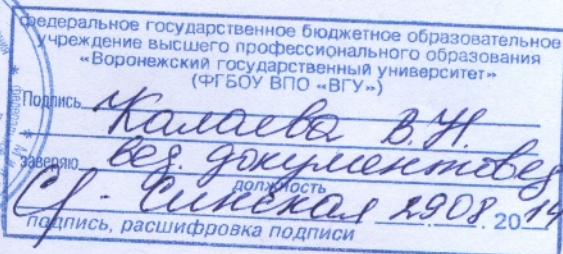 федеральное государственное бюджетное образовательное
учреждение высшего профессионального образования
«Воронежский государственный университет»
(ФГБОУ ВПО «ВГУ»)
Подпись Калаева В.Н.
заверяю вед. документовед
должность
Синская 29 08 2014
подпись, расшифровка подписи